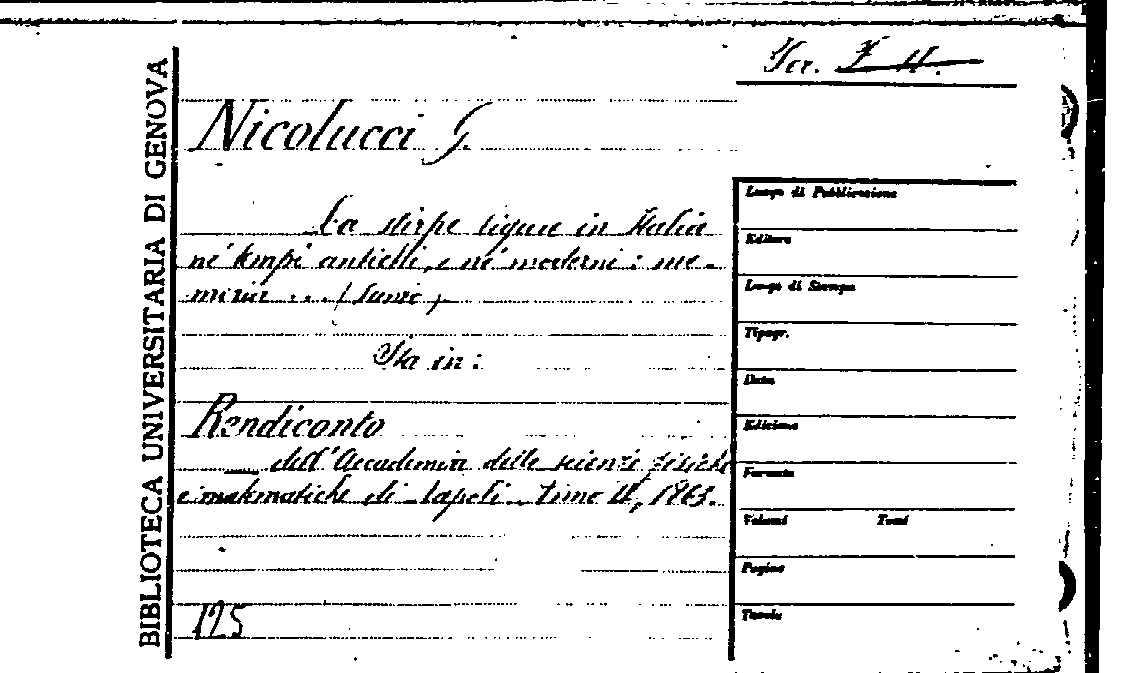 BIBLIOTECA UNIVERSITARIA DI GENOVA
Ser. F. II.
Nicolucci G.
La stirpe ligure in Italia
ne' tempi antichi, e ne' moderni: me-
moria ... (Sunto)
Sta in:
Rendiconto
— dell'Accademia delle scienze fisiche
e matematiche di Napoli. Tomo II, 1863.
125
Luogo di Pubblicazione
Editore
Luogo di Stampa
Tipogr.
Data
Edizione
Formato
Volumi Tomi
Pagine
Tavole